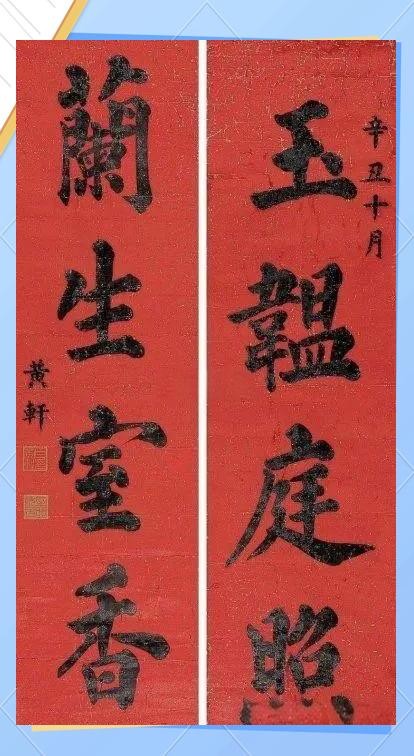 辛丑十月
玉韞庭照
蘭生室香
黃軒